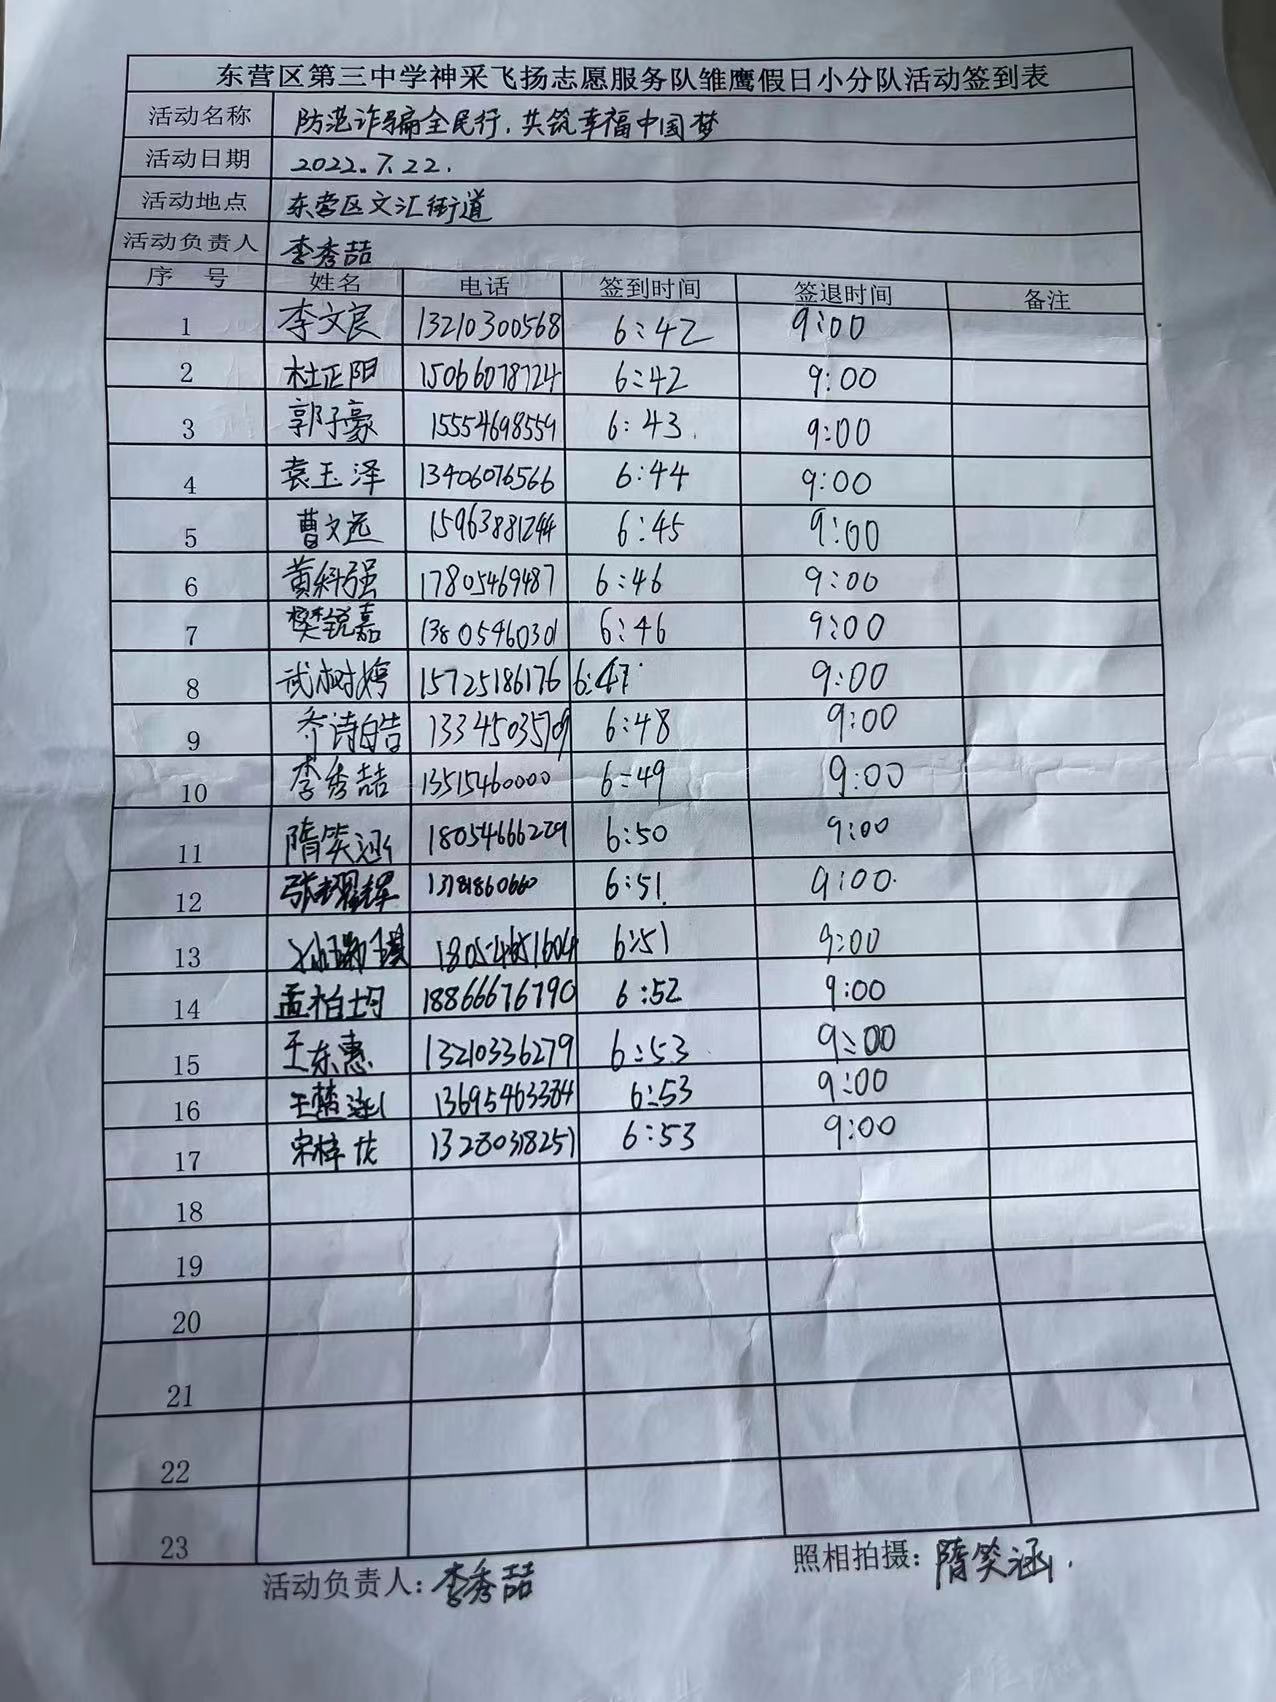 东营区第三中学神采飞扬志愿服务队雏鹰假日小分队活动签到表
活动名称 防范诈骗全民行，共筑幸福中国梦
活动日期 2022.7.22.
活动地点 东营区文汇街道
活动负责人 李秀喆
序 号 姓名 电话 签到时间 签退时间 备注
1 李文宸 13210300568 6:42 9:00
2 杜正阳 15066078724 6:42 9:00
3 郭子豪 15554698559 6:43 9:00
4 袁玉泽 13406076566 6:44 9:00
5 曹文远 15963881244 6:45 9:00
6 黄科强 17805469487 6:46 9:00
7 樊锐嘉 13805460301 6:46 9:00
8 武树婷 15725186176 6:47 9:00
9 乔诗皓 13345035709 6:48 9:00
10 李秀喆 13515460000 6:49 9:00
11 隋笑涵 18054666229 6:50 9:00
12 张耀辉 6:51 9:00
13 18054651604 6:51 9:00
14 孟柏均 18866676790 6:52 9:00
15 王东惠 13210336279 6:53 9:00
16 王楚涵 13695463384 6:53 9:00
17 宋梓 13280318251 6:53 9:00
18
19
20
21
22
23
活动负责人：李秀喆 照相拍摄：隋笑涵.